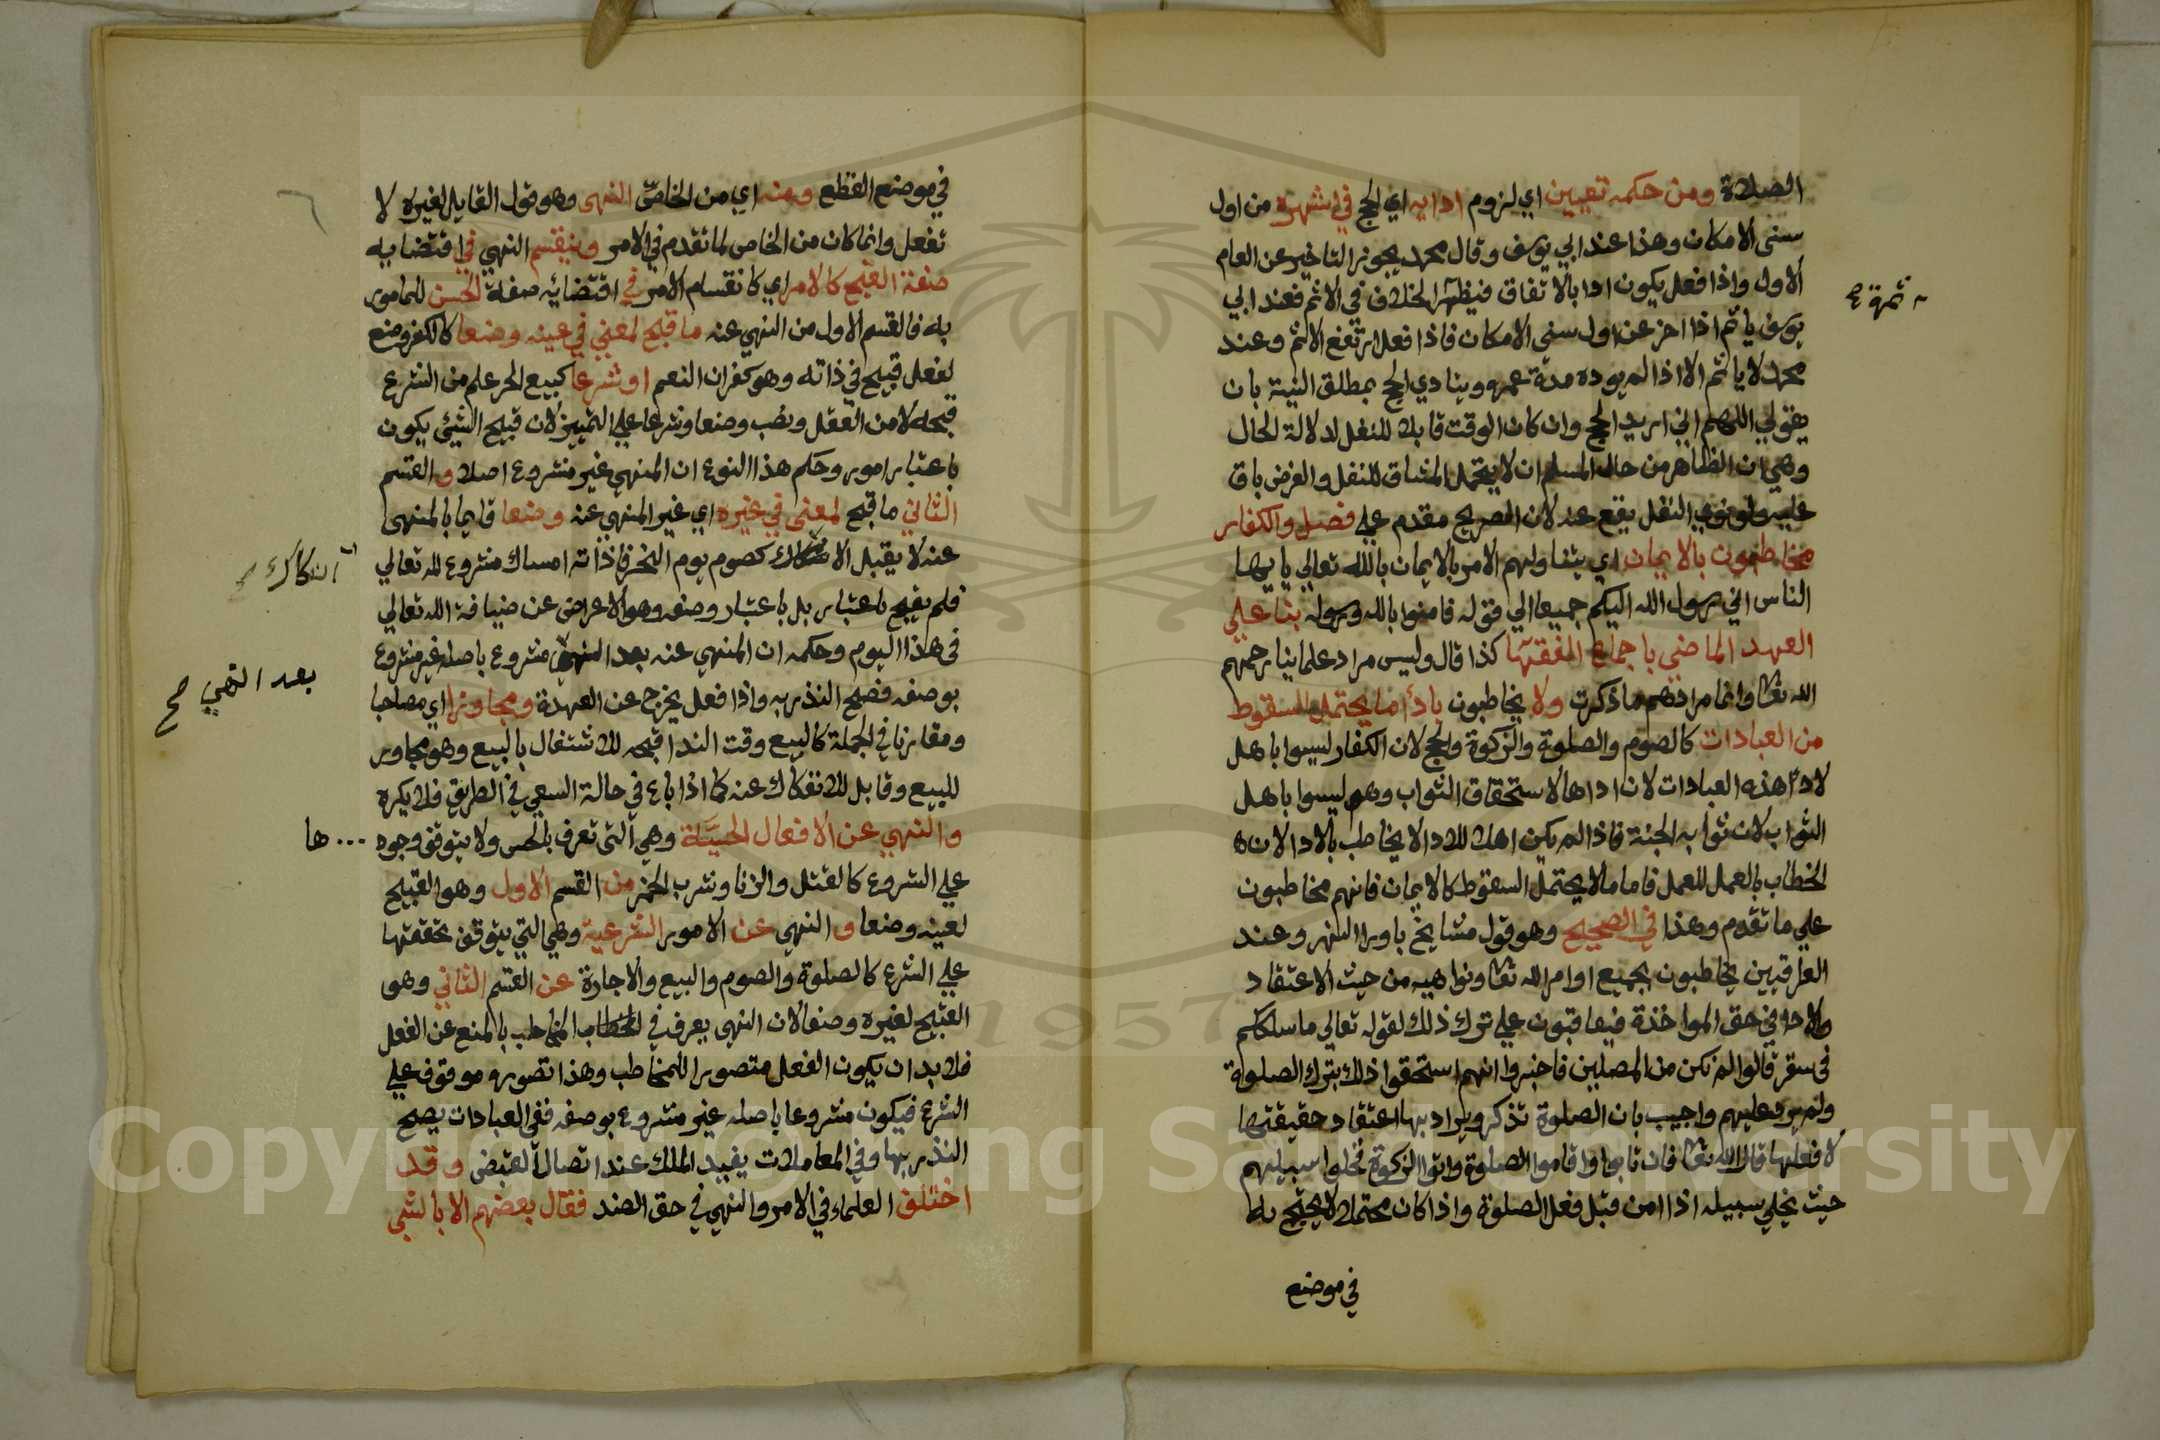 الصلاة ومن حكمه تعيين اي لزوم ادايه اي الحج في اشهره من اول
سنى الامكان وهذا عند ابي يوسف وقال محمد يجوز التاخير عن العام
الاول واذا فعل يكون ادا بالاتفاق فيظهر الخلاف في الاثم فعند ابي
ثمرة
يوسف ياثم اذا اخر عن اول سنى الامكان فاذا فعل ارتفع الاثم وعند
محمد لا ياثم الا اذا لم يوده مدة عمره ويتادي الحج بمطلق النية بان
يقول اللهم اني اريد الحج وان كان الوقت قابلا للنفل لدلالة الحال
وهي ان الظاهر من حال المسلم ان لا يتحمل المشاق للنفل والفرض باق
عليه ولو نوي النفل يقع عنه لان الصريح مقدم علي فصل والكفار
مخاطبون بالايمان اي يتناولهم الامر بالايمان بالله تعالي يا يها
الناس اني رسول الله اليكم جميعا الي قوله فامنوا بالله ورسوله بنا علي
العهد الماضي باجماع الفقها كذا قال وليس مراد علماينا رحمهم
الله تعا وانما مرادهم ما ذكرت ولا يخاطبون بادأ ما يحتمل السقوط
من العبادات كالصوم والصلوة والزكوة والحج لان الكفار ليسوا باهل
لادآ هذه العبادات لان اداها لاستحقاق الثواب وهم ليسوا باهل
الثواب لان ثوابه الجنة فاذا لم يكن اهلا للادا لا يخاطب بالادا لان
الخطاب بالعمل للعمل فاما ما لا يحتمل السقوط كالايمان فانهم مخاطبون
علي ما تقدم وهذا في الصحيح وهو قول مشايخ ما ورا النهر وعند
العراقيين يخاطبون بجميع اوامر الله تعا ونواهيه من حيث الاعتقاد
والادا في حق المواخذة فيعاقبون علي ترك ذلك لقوله تعالي ما سلككم
في سقر قالوا لم نكن من المصلين فاخبروا انهم استحقوا ذلك بترك الصلوة
ولم يرد عليهم واجيب بان الصلوة تذكر ويراد بها اعتقاد حقيقتها
لا فعلها قال الله تعا فان تابوا واقاموا الصلوة واتوا الزكوة فخلوا سبيلهم
حيث يخلي سبيله اذا امن قبل فعل الصلوة واذا كان محتملا لا يحتج به
في موضع
في موضع القطع ومنه اي من الخاص النهى وهو قول القايل لغيره لا
تفعل وانما كان من الخاص لما تقدم في الامر وينقسم النهي في اقتضايه
صفة القبح كالامر اي كانقسام الامر في اقتضائه صفة الحسن للمامور
به فالقسم الاول من النهي عنه ما قبح لمعني في عينه وضعا كالكفر وضع
لفعل قبيح في ذاته وهو كفران النعم او شرعا كبيع الحر علم من الشرع
قبحه لا من العقل ونصب وضعا وشرعا علي التمييز لان قبيح الشيئ يكون
باعتبار امور وحكم هذا النوع ان المنهي غير مشروع اصلا والقسم
الثاني ما قبح لمعنى في غيره اي غير المنهي عنه وضعا قايما بالمنهى
عنه لا يقبل الا كصوم يوم النحر فاذاته امساك مشروع لله تعالي
انفكاك
فلم يقبح باعتباره بل باعتبار وصفه وهو الاعراض عن ضيافة الله تعالي
في هذا اليوم وحكمه ان المنهي عنه بعد النهي مشروع باصله غير مشروع
بعد النهي صح
بوصفه فصح النذر به واذا فعل يخرج عن العهدة ومجاورا اي مصاحبا
ومقارنا في الجملة كالبيع وقت الندا قبحه للاشتغال بالبيع وهو مجاور
للبيع وقابل للانفكاك عنه كما اذا باع في حالة السعي في الطريق فلا يكره
والنهي عن الافعال الحسية وهي التى تعرف بالحس ولا يتوقف وجود
ها
علي الشروع كالقتل والزنا وشرب الخمر من القسم الاول وهو القبيح
لعينه وضعا والنهي عن الامور الشرعية وهي التي يتوقف تحققها
علي الشرع كالصلوة والصوم والبيع والاجارة عن القسم الثاني وهو
القبيح لغيره وصفا لان النهى يعرف في الخطاب المخاطب بالمنع عن الفعل
فلا بد ان يكون الفعل متصورا للمخاطب وهذا تصوره موقوف علي
الشرع فيكون مشروعا باصله غير مشروع بوصفه ففي العبادات يصح
النذر بها وفي المعاملات يفيد الملك عند اتصال القبض وقد
اختلف العلماء في الامر والنهي في حق الضد فقال بعضهم الا بالشي
Copyright © King Saud University
1957